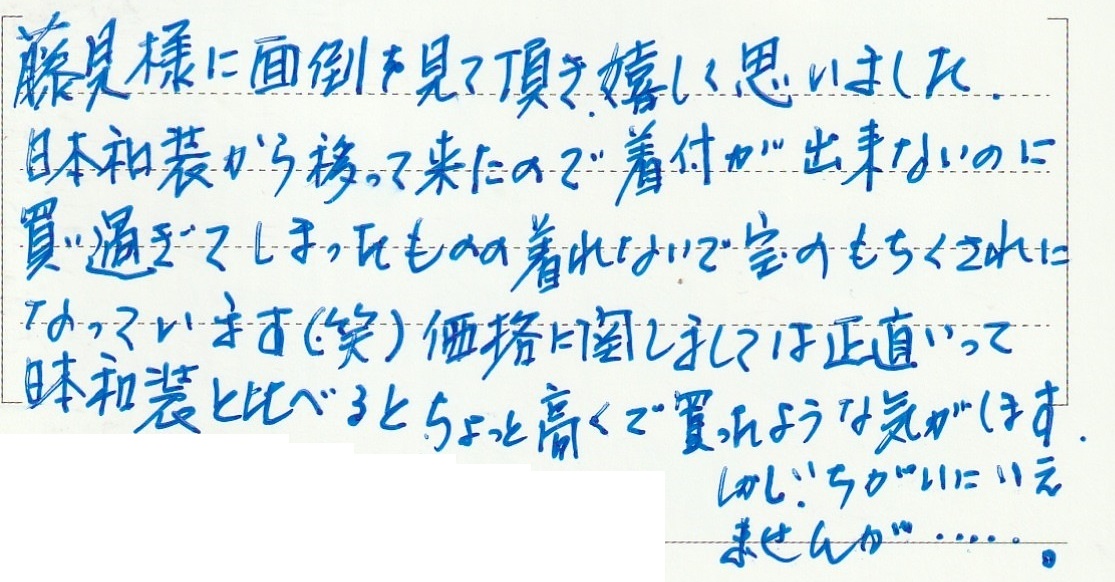 藤見様に面倒を見て頂き、嬉しく思いました.
日本和装から移って来たので着付が出来ないのに
買い過ぎてしまったものの着れないで宝のもちくされに
なっています(笑)価格に関しましては正直いって
日本和装と比べるとちょっと高くで買ったような気がします.
しかし、いちがいにいえ
ませんが‥‥‥。